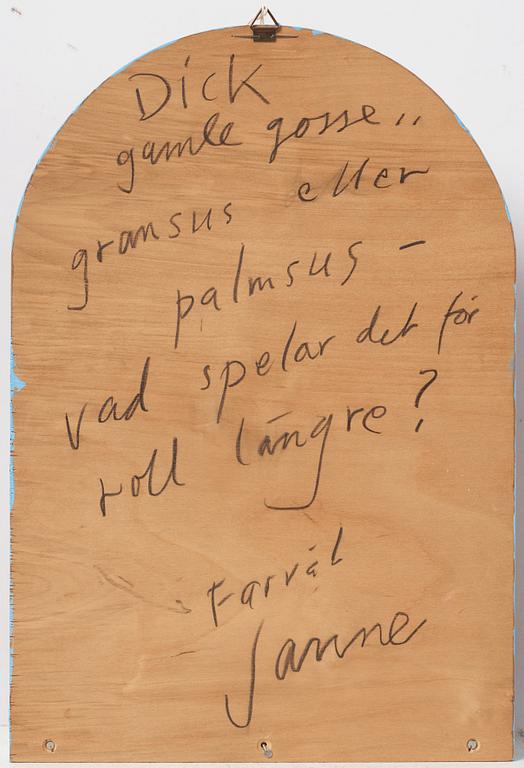 Dick
gamle gosse,,
gransus eller
palmsus –
vad spelar det för
roll längre?
Farväl
Janne